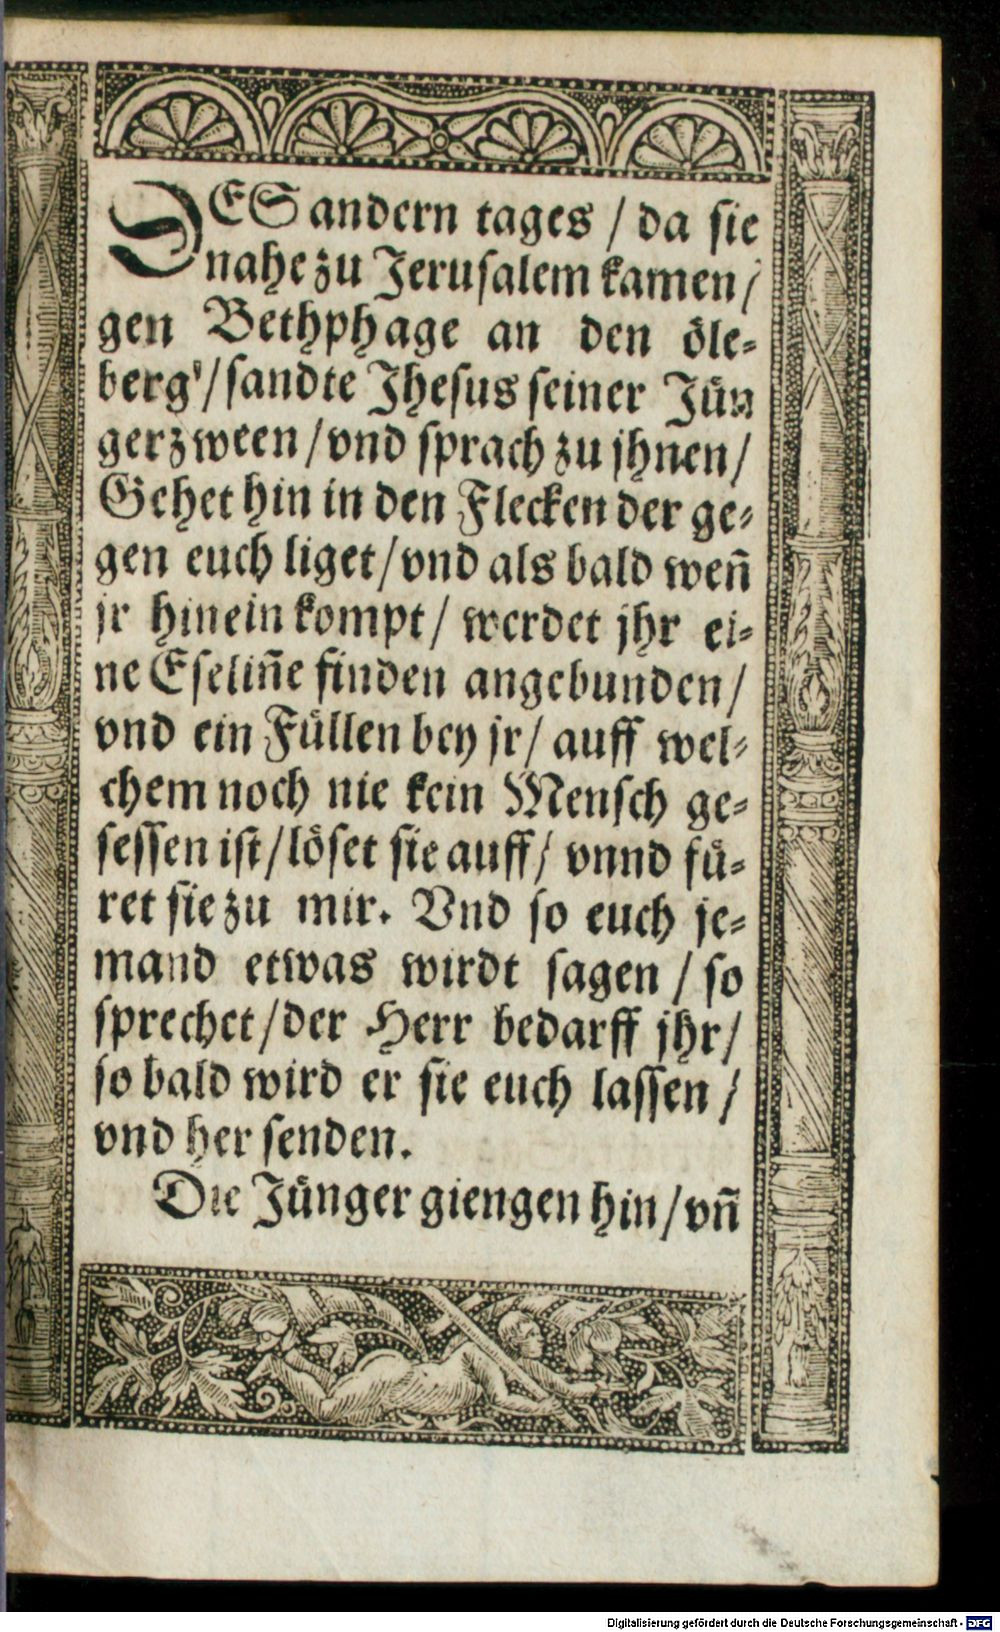 DES andern tages / da sie
nahe zu Jerusalem kamen /
gen Bethphage an den öle-
berg / sandte Jhesus seiner Jün
ger zween / vnd sprach zu jhnen /
Gehet hin in den Flecken der ge-
gen euch liget / vnd als bald weñ
jr hinein kompt / werdet jhr ei-
ne Eseliñe finden angebunden /
vnd ein Füllen bey jr / auff wel-
chem noch nie kein Mensch ge-
sessen ist / löset sie auff / vnnd fü-
ret sie zu mir. Vnd so euch je-
mand etwas wirdt sagen / so
sprechet / der Herr bedarff jhr /
so bald wird er sie euch lassen /
vnd her senden.
Die Jünger giengen hin / vñ
Digitalisierung gefördert durch die Deutsche Forschungsgemeinschaft - DFG